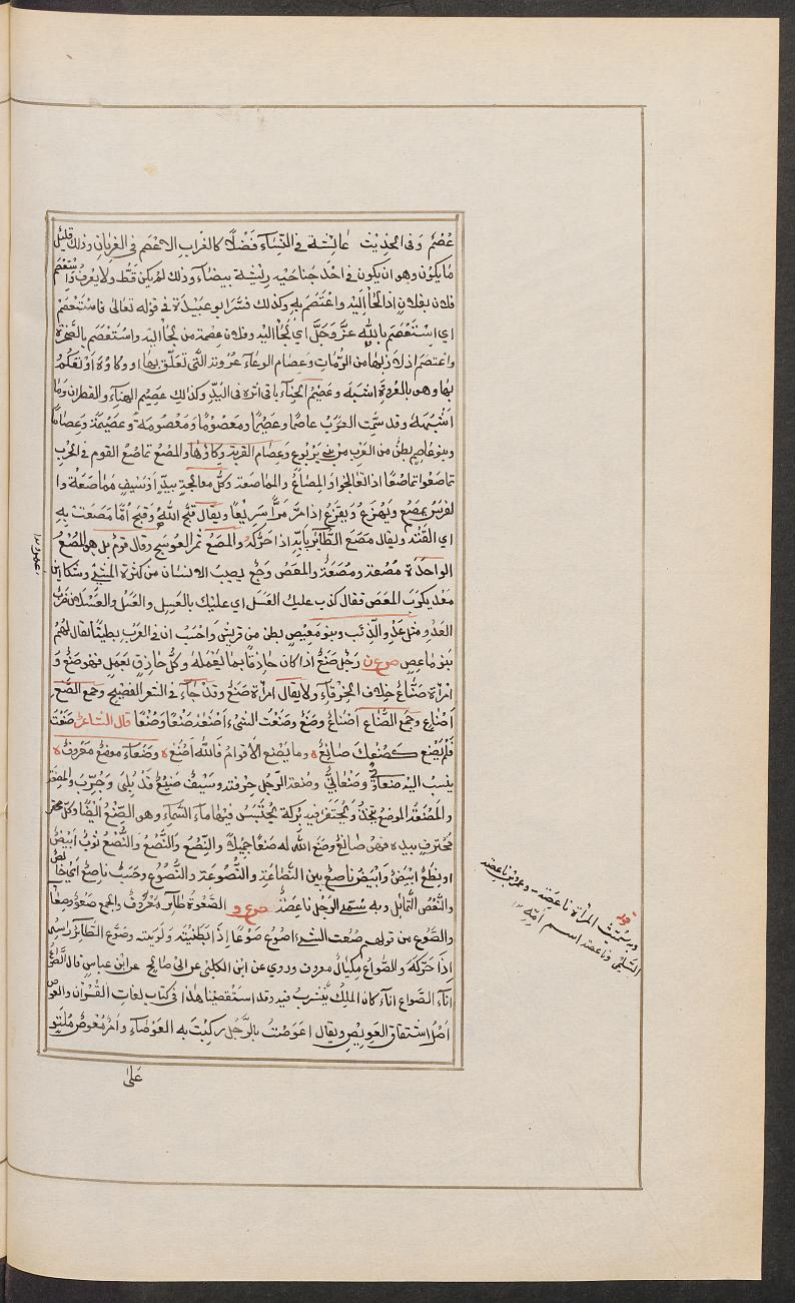 عُصْم وَفى الحَدِيْث عائشة فى النِسَاء فَضْلًا كالغراب الاعْصَم فى الغربان وذلك قليل
مَا يكوْن وهو ان يكون فى احْد جَناحَيه ريْشة بيضاء وذلك لم يكن قَط ولا يعرف واسْتعْصَم
فلان بفلان اذا لَجَأ اليه واعْتصَم به وكذلك فسّر ابو عبيدة فى قوله تعالى فاسْتعْصَم
اى اسْتَعْصَم بالله عزّ وَجَلَّ اى لَجَأ اليه وفلان عصْمة من لجَأ اليه واسْتعْصَم بالصّخرة
واعتصم اذا لاذ بها من الرّماة وعِصام الوعَاء عُرْوته التّى تعَلّق بها او وِكاؤه
بها وهى بالعُروة اشبه وعُصْم الحِنّاء باقى اثره فى اليَدِ وكذلك عصيْم الهِنَاء والقطران وَمَا
اشْبَهه وقد سمّت العَرَبُ عاصمًا وعُصَيْمًا ومعصُومًا وَمَعْصُومَة وعصيْمَة وَعِصامًا
وبنو عَاصِم بطن من العَرَب من بنى يربُوع وعِصام القربة وِكاؤها والمصْع تماصُع القوم فى الحرْب
تماصَعُوا تماصُعًا اذا تعالجَوا والمِصَاعُ والمماصَعة وكلُّ معالجة بيدٍ او سَيفٍ مماصَعَة وا
لفرَسُ يمصَع وَيهْزع وَيقزع اذا مرَّ مَرًّا سَريْعًا ويقال قبّح اللهُ وَقبح اُمًّا مَصَعت بِه
اى القَتْه ويقال مَصَع الطّائر بذنَبِهِ اذا حَرّكه والمصَعُ ثمَر العَوسَج وقال قوم بل هو المُصْعُ
الواحدَة مُصْعة ومُصَعَة والمَعَص وَجَع يصِيبُ الانسَان من كثرة المشى وَشكا بن
مَعْد يكرَب المَعَص فقال كذب عليك العَسَل اى عليك بالعَسِل والعَسَل والعَسَلان ضَرْب
العَدْوِ مثل عَدْو الذئب وبنو مَعِيْص بطن من قريش وَاحْسَب ان فى العَرَب بطنًا يقال لهُم
بَنو مَاعِص ص ع ن رَجُل صَنَعٌ اذا كان حَاذِقًا بما يَعْمَلهُ وكلُّ حَاذق بعَمَلٍ فهو صَنع وَ
امرأة صَنَاعٌ خِلاف الخرقاء ولا يقال امرأة صَنَع وَقد جَاء فى الشعر الفَصيْح وجَمع الصَّنَع
اصْنَاع وَجَمع الصَّنَاع اَصْنَاعٌ وصُنع وصَنَعْت الشىْء اَصْنَعُه صَنْعًا وَصُنْعًا قال الشاعر صَنَعْت
فَلَمْ يَصْنَع كَصُنْعِكَ صَانِعٌ ه وما يَصْنع الأقوامُ فَالله اَصْنَع ه وصَنْعَاء موضع مَعْروف ه
ينسب اليه صنعاوى وصَنْعانِىٌّ وصَنعة الرّجل حِرفته وسَيفٌ صَنِيْعٌ قد بُلِى وَجُرّب والمصْنعَة
والمَصْنَعة الموضع يُتخذ وَيُحْتفَر فيه بركة يُحْتَبس فيْهَا ماء السَّمَاء وهو الصِّنْع ايْضًا وكلّ
محترف بيده فهو صَانِعٌ وصَنَع اللّه له صُنْعًا جمِيْلًا والنِّصْع وَالنّصْع والنُّصْع ثوبٌ ابيض
او نِطَع ابيَض وَابْيَض نَاصِع بين النّصَاعَة والنُّصُوعة وَالنُّصُوع وحَسَبٌ ناصِعٌ اَى خالصٌ
والنَّعْص التَّمَايُل وبه سُمى الرَجل نَاعِصَة ص ع و الصَّعْوَة طَائِر مَعْرُوفٌ والجمع صَعْوٌ وصِعَاء
والصَّوْع من قولهم صُعت الشىْء اصُوعُ صَوْعًا اِذا ثنيْتَه وَلَوَيته وصَوَّع الطّائر رَاسهُ
اِذَا حَرّكهَ والصُّواعُ مكيالٌ معروف وروى عن ابن الكلبى عن ابى صَالح عن ابن عباسٍ قال الصّواعُ
انَاءٌ الصّواع انَاء كان المَلِكُ يَشرب فيه وقد اسْتَقْصَيْنا هَذَا فى كتاب لغات القُرْآن والعَوَص
اَصْل اشتقاق العَوِيْص ويقال اَعْوَصْتُ بالرّجُل رَكبْت به العَوْصَاء وَامرٌ مُعْوِص مُلتَوٍ
على
وسُمّيت المرأة ناعصَة وعمرو بن ناعصة
السّلمى وناعصة اسم اُمّه